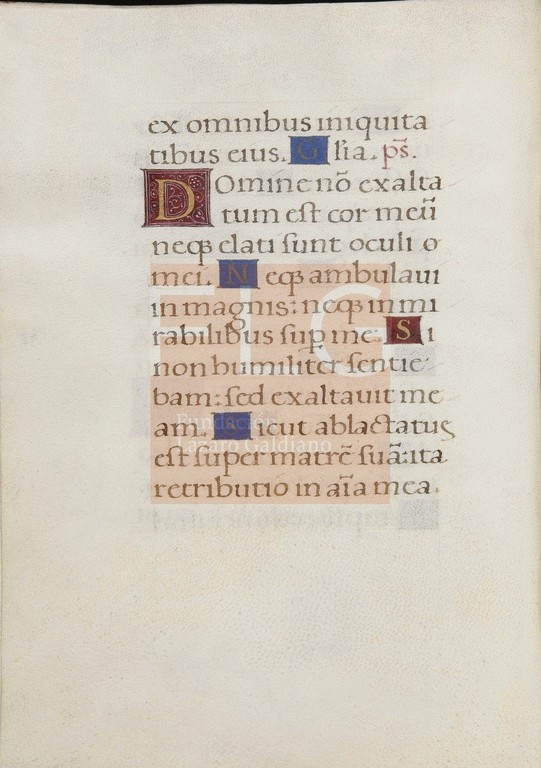 ex omnibus iniquita
tibus eius. G lia. ps̃.
Domine nõ exalta
tum est cor meũ
neqꝫ elati sunt oculi o
mei. Neqꝫ ambulaui
in magnis: neqꝫ in mi
rabilibus suꝑ me. Si
non humiliter sentie
bam: sed exaltauit me
am. Sicut ablactatus
est super matrẽ suã: ita
retributio in aĩa mea.
FLG
Fundación
Lázaro Galdiano